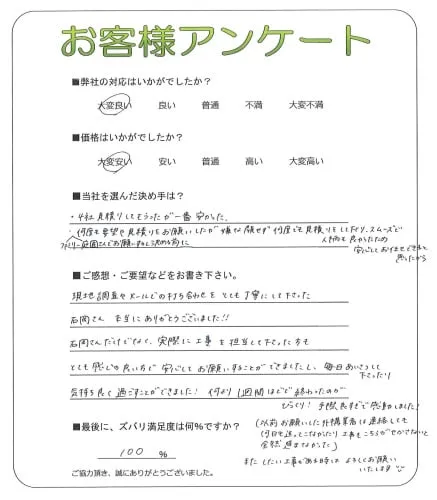 お客様アンケート
■弊社の対応はいかがでしたか？
大変良い 良い 普通 不満 大変不満
■価格はいかがでしたか？
大変安い 安い 普通 高い 大変高い
■当社を選んだ決め手は？
・4社見積りしてもらったが一番安かった.
・何度も要望や見積りをお願いしたが嫌な顔せず何度でも見積りをして下り、スムーズで
人柄も良かったため
安心しておまかせできると
思ったから
■ご感想・ご要望などをお書き下さい。
現地調査やメールでの打ち合わせをとても丁寧にして下さった
石岡さん 本当にありがとうございました!!
石岡さんだけでなく、実際に工事を担当して下さった方も
とても感じの良い方で安心してお願いすることができましたし、毎日あいさつして
下さったり
気持ち良く過ごすことができました! 何より1週間ほどで終わったのが
びっくり! 手際良すぎで感動しました!
■最後に、ズバリ満足度は何%ですか？
100 %
(以前お願いした外構業者は連絡しても
何日も返ってこなかったり工事もこちらがせかさないと
全然進まなかった)
またしたい工事がある時はよろしくお願い
いたします
ご協力頂き、誠にありがとうございました。